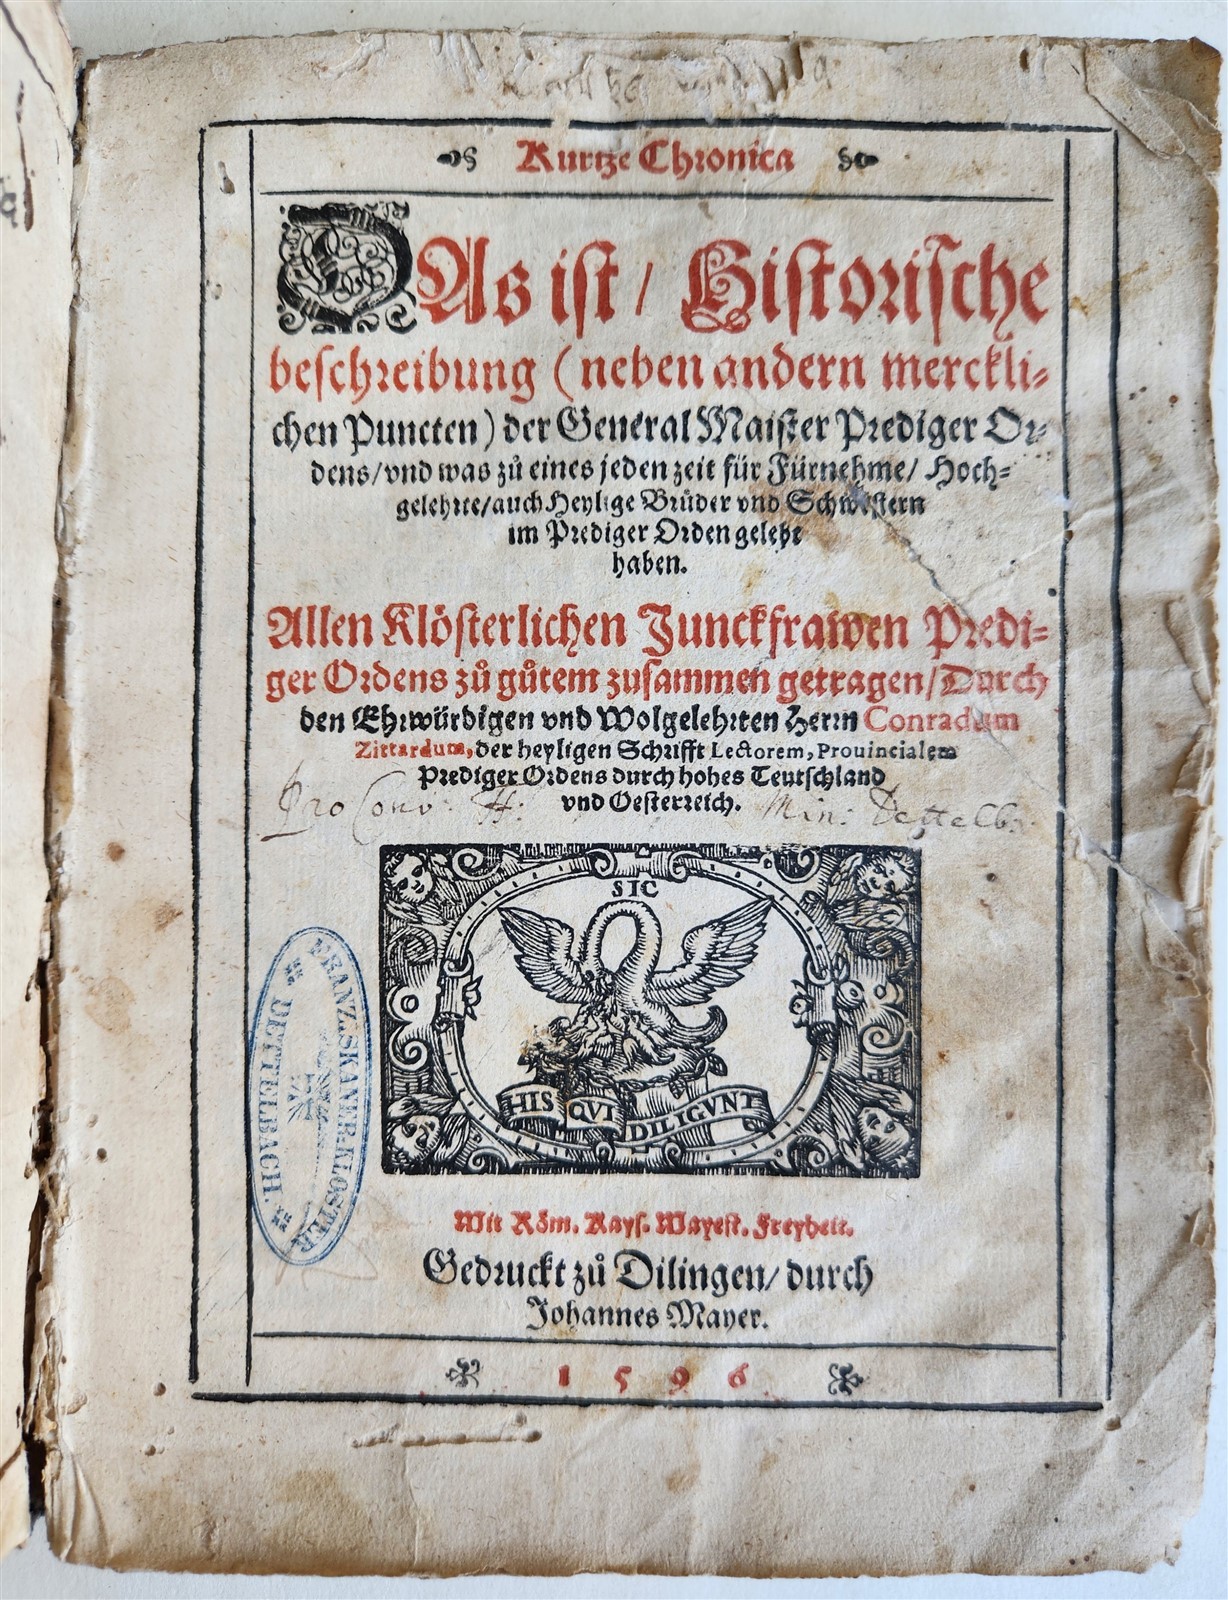 Kurtze Chronica
DAs ist / Historische
beschreibung (neben andern merckli-
chen Puncten) der General Maister Prediger Or-
dens/vnd was zů eines jeden zeit für Fürnehme/ Hoch-
gelehrte/auch Heylige Brůder vnd Schwestern
im Prediger Orden gelebt
haben.
Allen Klösterlichen Junckfrawen Predi-
ger Ordens zů gůtem zusammen getragen/Durch
den Ehrwürdigen vnd Wolgelehrten Herrn Conradum
Zittardum, der heyligen Schrifft Lectorem, Prouincialem
Prediger Ordens durch hohes Teutschland
vnd Oesterreich.
Pro Conv: Min: Dettelb:
SIC
HIS QVI DILIGVNT
FRANZISKANER-KLOSTER
DETTELBACH.
Mit Röm. Kays. Mayest. Freyheit.
Gedruckt zů Dilingen/ durch
Johannes Mayer.
1596